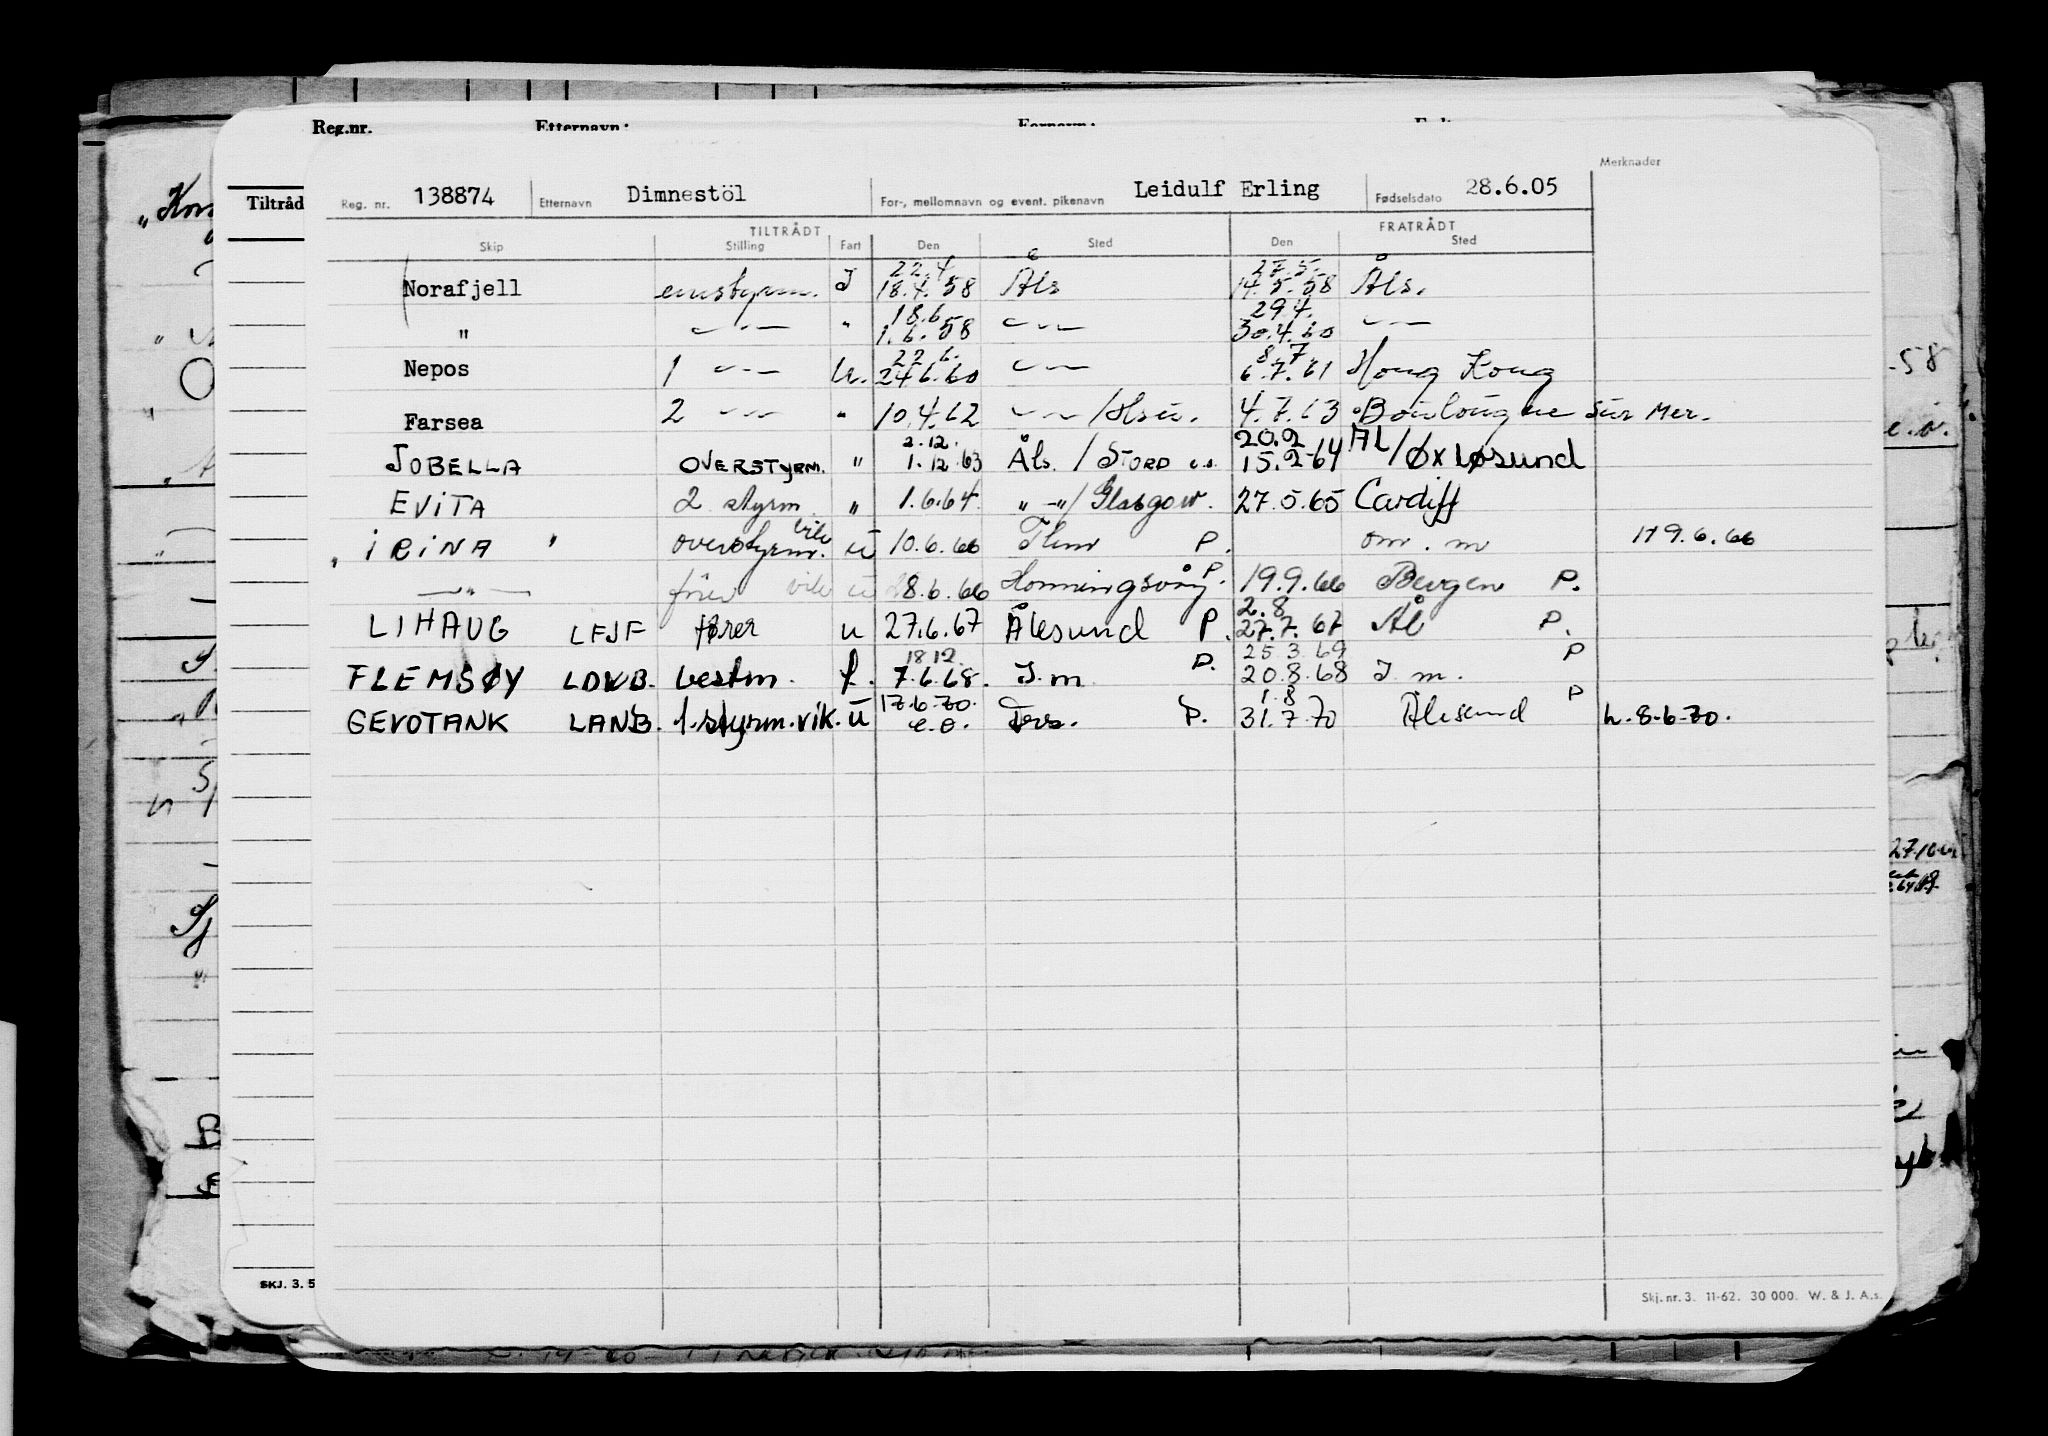 Reg.nr. Etternavn: Fornavn:
Merknader
Tiltråd
Reg. nr. 138874 Etternavn Dimnestöl For-, mellomnavn og event. pikenavn Leidulf Erling Fødselsdato 28.6.05
TILTRÅDT FRATRÅDT
Skip Stilling Fart Den Sted Den Sted
22.4 27.5.
Norafjell enestyrm. I 18.4.58 Åls 14.5.58 Åls.
18.6 29.4.
" — " — " 1.6.58 — " — 30.4.60 — " —
22.6. 8.7
Nepos 1 — " — U. 24.6.60 — " — 6.7.61 Hong Kong
Farsea 2 — " — " 10.4.62 — " — 4.7.63 Boulougne sur Mer.
2.12. 20.2
JOBELLA OVERSTYRM. " 1.12.63 Åls. / STORD 15.2-64 ÅL/ØXLØSUND
EVITA 2 styrm. " 1.6.64 " -"/ Glasgow. 27.5.65 Cardiff
" IRINA " overstyrm. vik u 10.6.66 P. om. m 9.6.66
— " — fører vik u 8.6.66 Honningsvåg P. 19.9.66 Bergen P.
2.8
LIHAUG LFJF fører u 27.6.67 Ålesund P. 27.7.67 Ål P.
18.12. 25.3.69
FLEMSØY LDVB. bestm. f. 7.6.68. I.m. P. 20.8.68 I.m. P
17.6.70. 1.8
GEVOTANK LANB. 1.styrm.vik. u e.o. P. 31.7.70 Ålesund P h.8-6-70.
-58
SKJ. 3. 5
Skj. nr. 3. 11-62. 30 000. W. & J. A.s.